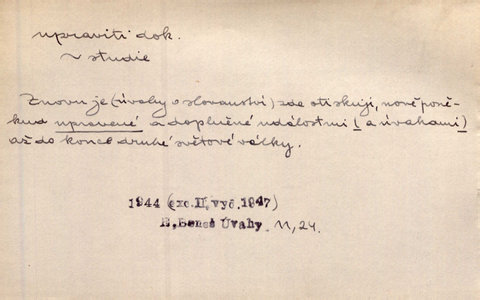 upraviti dok.
~ studie
Znovu je (úvahy o slovanství) zde otiskuji, nově poně-
kud upravené a doplněné událostmi (a úvahami)
až do konce druhé světové války.
1944 (exc. II. vyd. 1947)
E. Beneš Úvahy 11,24.